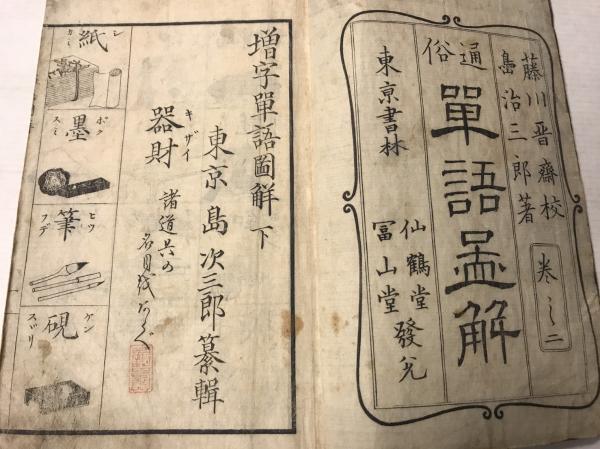 藤川晋齋校
嶌治三郎著
巻之二
通俗
單語圖解
東亰書林
仙鶴堂
冨山堂
發兌
増字單語圖解 下
東京 島次三郎纂輯
キザイ
器財
諸道具の
名目越ならべ
シ
紙
カミ
ボク
墨
スミ
ヒツ
筆
フデ
ケン
硯
スヾリ